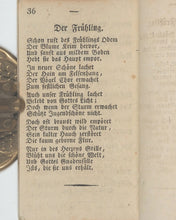 36
Der Frühling.
Schon ruft des Frühlings Odem
Der Blume Keim hervor,
Und sanft aus mildem Boden
Hebt sie das Haupt empor.
In neuer Schöne lachet
Der Hain am Felsenhang,
Der Vögel Chor erwachet
Zum festlichen Gesang.
Auch unser Frühling lachet
Belebt von Gottes Licht;
Doch wenn der Sturm erwachet
Schützt Jugendschöne nicht.
Noch oft braust wild empört
Der Sturm durch die Natur,
Sein kalter Hauch zerstört
Die kaum geborne Flur.
Nur in des Herzens Stille,
Blüht uns die schöne Welt,
Und Gottes Gnadenfülle
Ists, die sie uns erhält.